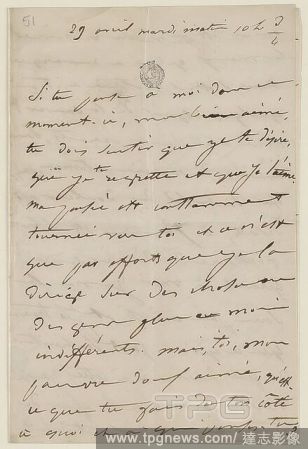 51
29 avril mardi matin 10 h 3/4
Si tu penses à moi dans ce
moment-ci, mon bien-aimé,
tu dois sentir que je te désire,
que je te regrette et que je t'aime.
Ma pensée est constamment
tournée vers toi et ce n'est
que par efforts que je la
dirige sur des choses ou
des gens plus ou moins
indifférents. Mais, toi, mon
pauvre doux aimé, qu'est-
ce que tu fais de ton côté
à quoi et à qui penses-tu
TPG
www.tpgnews.com/達志影像